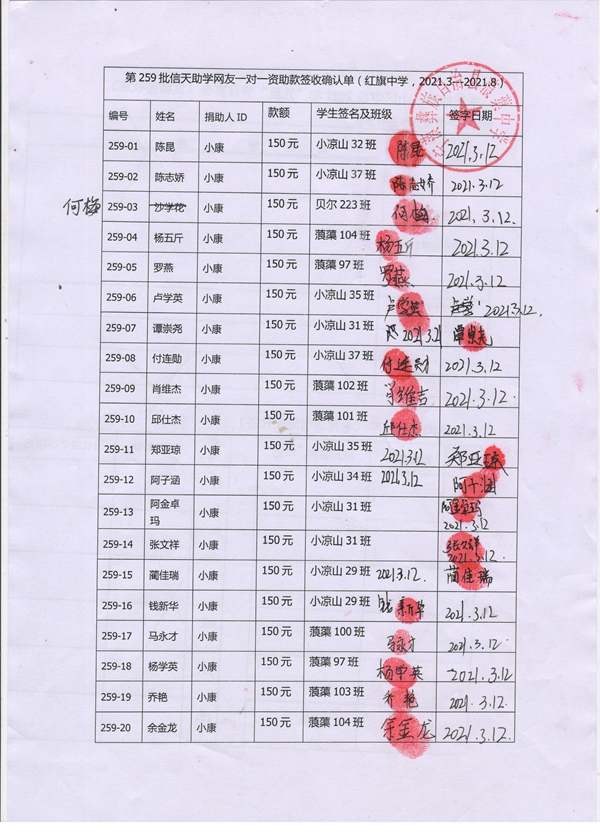 第 259 批信天助学网友一对一资助款签收确认单（红旗中学，2021.3---2021.8）
编号 姓名 捐助人 ID 款额 学生签名及班级 签字日期
259-01 陈昆 小康 150 元 小凉山 32 班 陈昆 2021.3.12
259-02 陈志娇 小康 150 元 小凉山 37 班 陈志娇 2021.3.12
何梅 259-03 沙学花 小康 150 元 贝尔 223 班 何梅 2021.3.12.
259-04 杨五斤 小康 150 元 蕻藻 104 班 杨五斤 2021.3.12
259-05 罗燕 小康 150 元 蕻藻 97 班 罗燕 2021.3.12
259-06 卢学英 小康 150 元 小凉山 35 班 卢学英 2021.3.12.
259-07 谭崇尧 小康 150 元 小凉山 31 班 2021.3.21 谭崇尧
259-08 付连勋 小康 150 元 小凉山 37 班 付连勋 2021.3.12
259-09 肖维杰 小康 150 元 蕻藻 102 班 肖维吉 2021.3.12
259-10 邱仕杰 小康 150 元 蕻藻 101 班 邱仕杰 2021.3.12
259-11 郑亚琼 小康 150 元 小凉山 35 班 2021.3.12 郑亚琼
259-12 阿子涵 小康 150 元 小凉山 34 班 2021.3.12 阿子涵
259-13 阿金卓玛 小康 150 元 小凉山 31 班 阿金卓玛 2021.3.12
259-14 张文祥 小康 150 元 小凉山 31 班 张文祥 2021.3.12
259-15 蔺佳瑞 小康 150 元 小凉山 29 班 2021.3.12. 蔺佳瑞
259-16 钱新华 小康 150 元 小凉山 29 班 钱新华 2021.3.12
259-17 马永才 小康 150 元 蕻藻 100 班 马永才 2021.3.12
259-18 杨学英 小康 150 元 蕻藻 97 班 杨学英 2021.3.12
259-19 乔艳 小康 150 元 蕻藻 103 班 乔艳 2021.3.12
259-20 余金龙 小康 150 元 蕻藻 104 班 余金龙 2021.3.12.